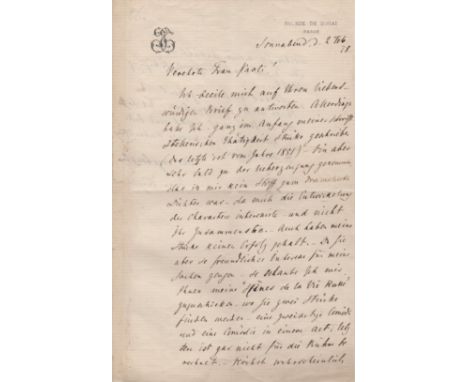 50, RUE DE DOUAI
PARIS
Sonnabend, d. 2 Feb.
78
Verehrte Frau
Ich beeile mich auf Ihren liebens-
würdigen Brief zu antworten. Allerdings
habe ich ganz im Anfang meiner schrift
stellerischen Thätigkeit Stücke geschrieben
(das letzte ist vom Jahre 1851) Bin aber
sehr bald zu der Ueberzeugung gekommen
dass in mir kein Stoff zum Dramatischen
Dichter war. Da mich die Entwickelung
des Charakters interessirte und nicht
ihr Zusammenstoss. Auch haben meine
Stücke keinen Erfolg gehabt. Da Sie
aber so freundliches Interesse für meine
Sachen zeigen, so erlaube ich mir
Ihnen meine "Scènes de la Vie Russe"
zuzuschicken, wo Sie zwei Stücke
finden werden: eine zweiaktige Comödie
und eine Comödie in einem Act. Letz
tere ist gar nicht für die Bühne be
rechnet. Höchst wahrscheinlich